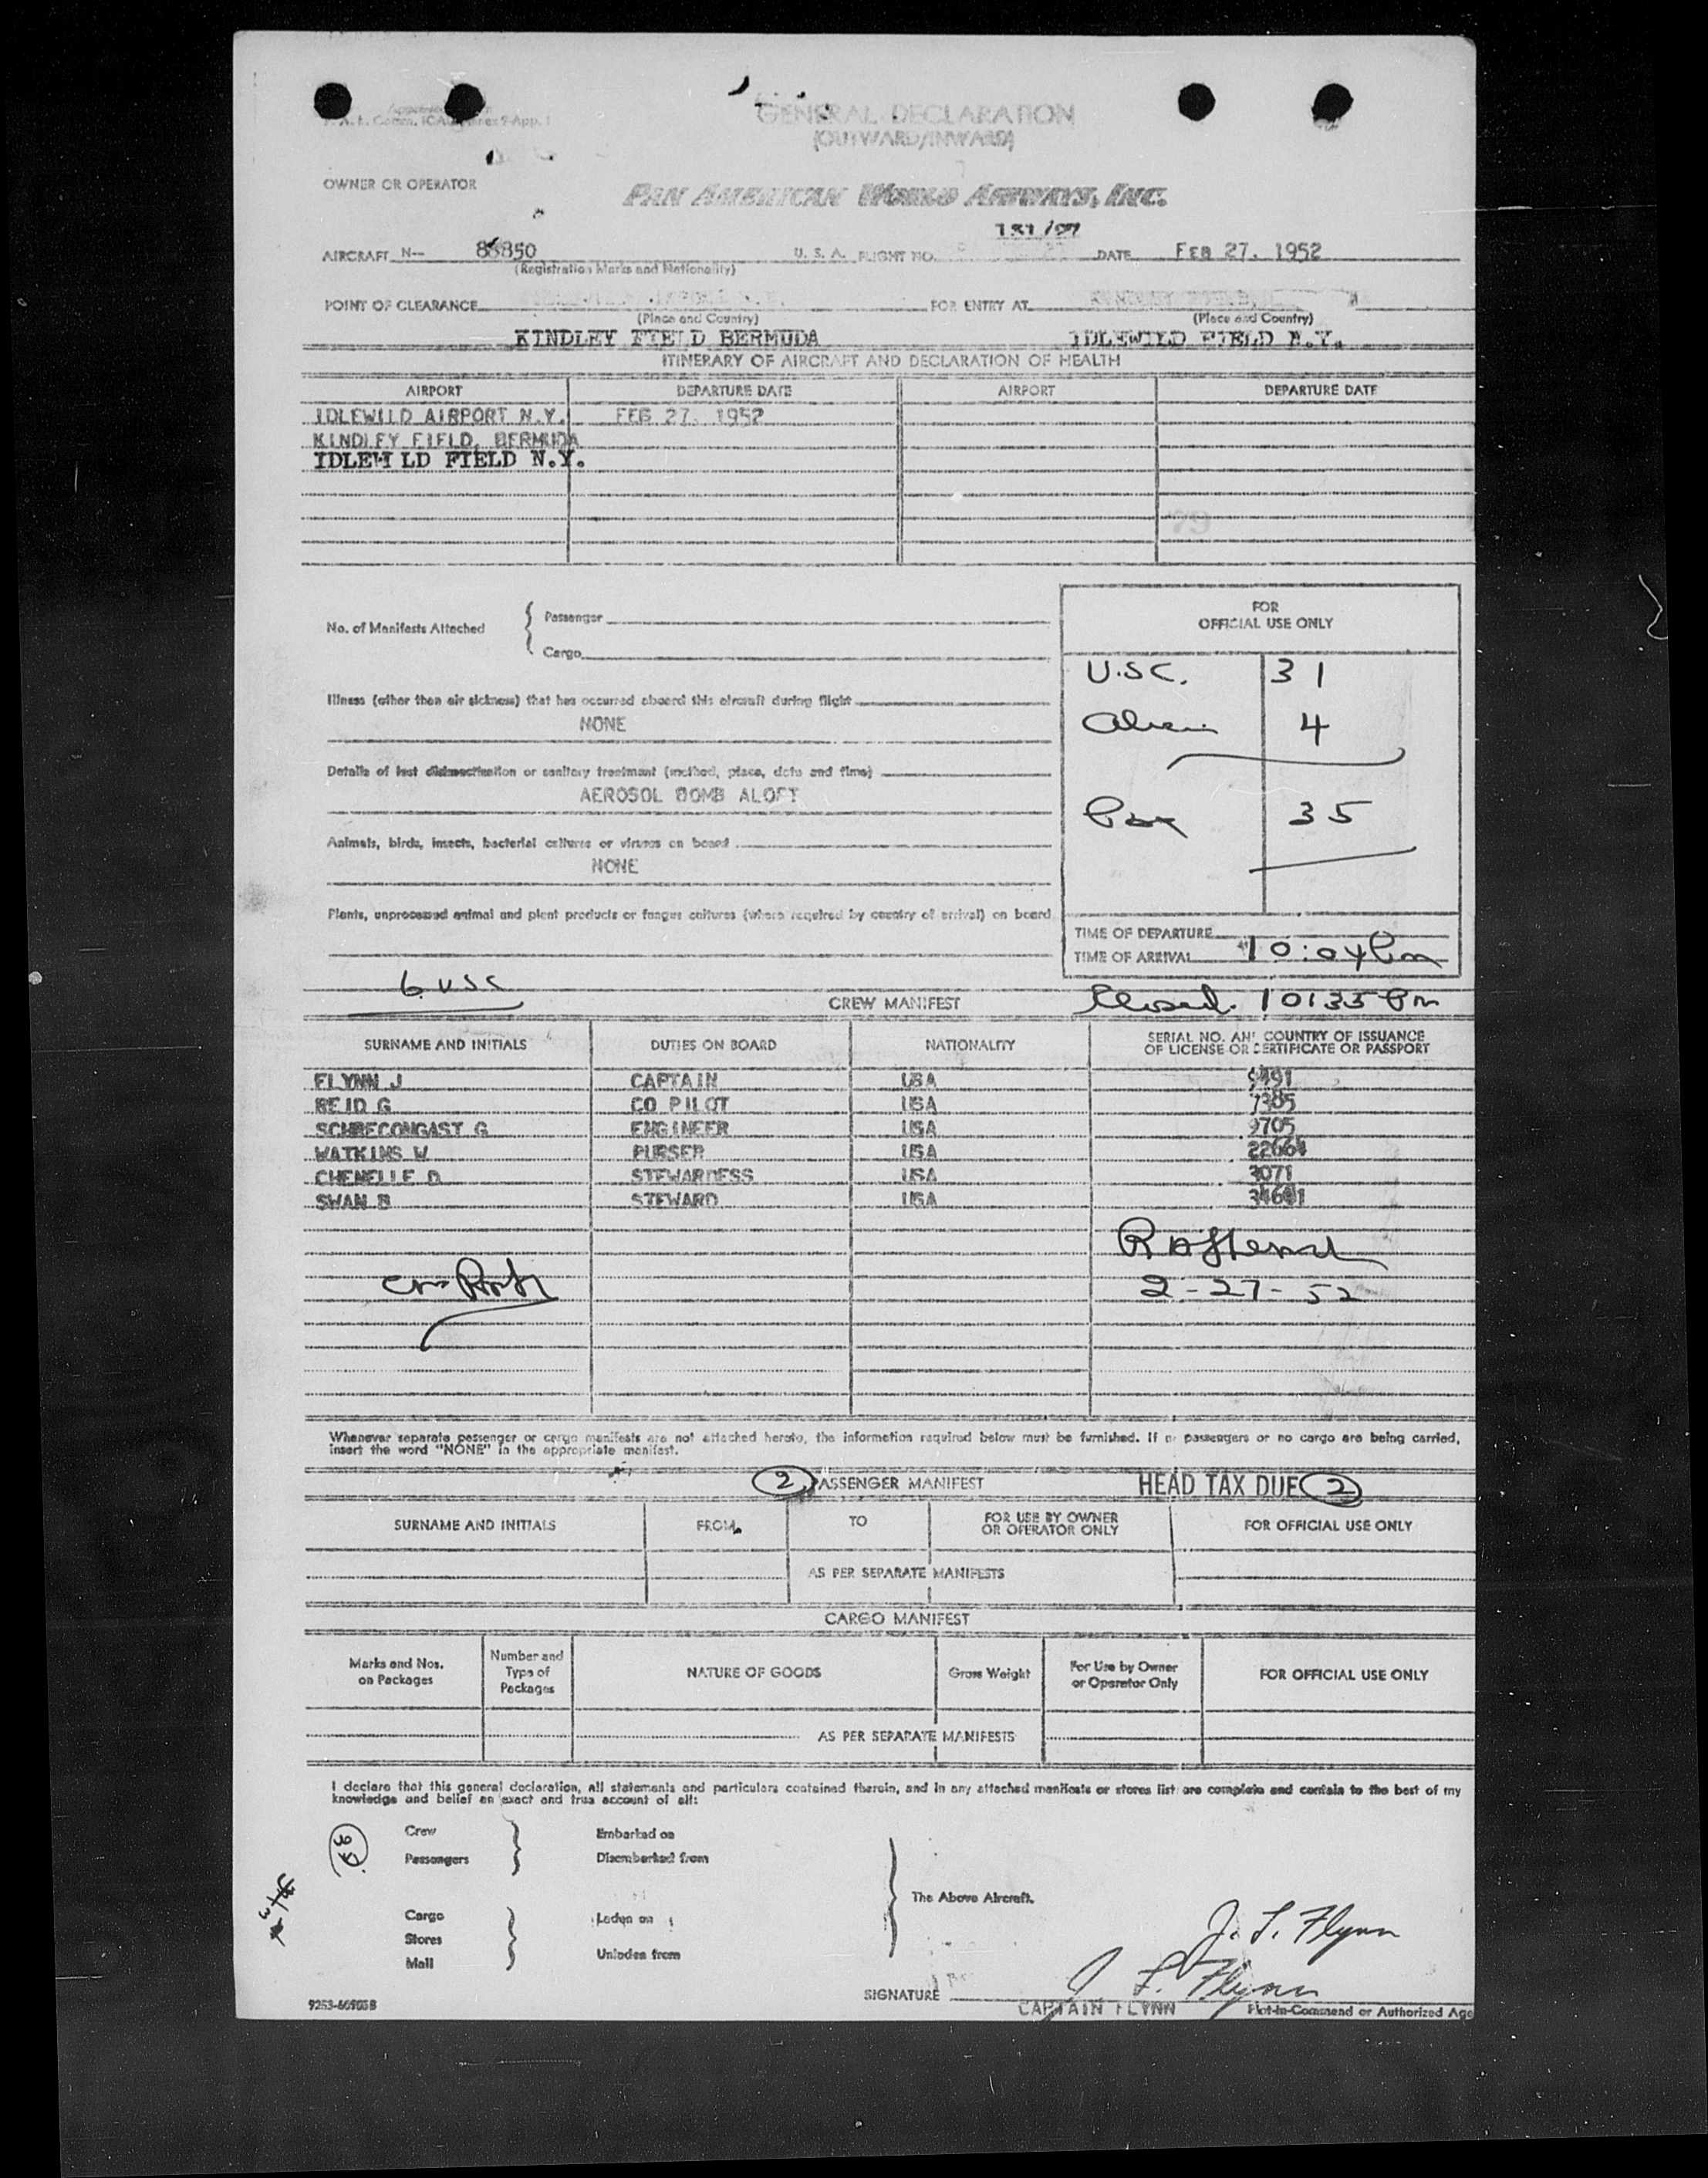 GENERAL DECLARATION
(OUTWARD/INWARD)
OWNER OR OPERATOR
PAN AMERICAN WORLD AIRWAYS, INC.
AIRCRAFT N-- 88850 U. S. A. FLIGHT NO. 131/27 DATE FEB 27, 1952
(Registration Marks and Nationality)
POINT OF CLEARANCE FOR ENTRY AT
(Place and Country) (Place and Country)
KINDLEY FIELD BERMUDA IDLEWILD FIELD N.Y.
ITINERARY OF AIRCRAFT AND DECLARATION OF HEALTH
AIRPORT DEPARTURE DATE AIRPORT DEPARTURE DATE
IDLEWILD AIRPORT N.Y. FEB 27, 1952
KINDLEY FIELD, BERMUDA
IDLEWILD FIELD N.Y.
79
No. of Manifests Attached
Passenger
Cargo
FOR
OFFICIAL USE ONLY
U.S.C. 31
Alien 4
Pax 35
Illness (other than air sickness) that has occurred aboard this aircraft during flight
NONE
Details of last disinsectization or sanitary treatment (method, place, date and time)
AEROSOL BOMB ALOFT
Animals, birds, insects, bacterial cultures or viruses on board
NONE
Plants, unprocessed animal and plant products or fungus cultures (where required by country of arrival) on board
TIME OF DEPARTURE
TIME OF ARRIVAL 10:04 Pm
6 USC
CREW MANIFEST Closed. 10:35 Pm
SURNAME AND INITIALS DUTIES ON BOARD NATIONALITY SERIAL NO. AND COUNTRY OF ISSUANCE
OF LICENSE OR CERTIFICATE OR PASSPORT
FLYNN J CAPTAIN USA 9491
REID G CO PILOT USA 7385
SCHRECONGAST G ENGINEER USA 9705
WATKINS W PURSER USA 22664
CHENELLE D STEWARDESS USA 3071
SWAN B STEWARD USA
2-27-52
Whenever separate passenger or cargo manifests are not attached hereto, the information required below must be furnished. If no passengers or no cargo are being carried,
insert the word "NONE" in the appropriate manifest.
2 PASSENGER MANIFEST HEAD TAX DUE 2
SURNAME AND INITIALS FROM TO FOR USE BY OWNER
OR OPERATOR ONLY FOR OFFICIAL USE ONLY
AS PER SEPARATE MANIFESTS
CARGO MANIFEST
Marks and Nos.
on Packages
Number and
Type of
Packages
NATURE OF GOODS
Gross Weight
For Use by Owner
or Operator Only
FOR OFFICIAL USE ONLY
AS PER SEPARATE MANIFESTS
I declare that this general declaration, all statements and particulars contained therein, and in any attached manifests or stores list are complete and contain to the best of my
knowledge and belief an exact and true account of all:
Crew Embarked on
Passengers Disembarked from
The Above Aircraft.
Cargo Laden on
Stores
Mail Unladen from
J. L. Flynn
J L Flynn
SIGNATURE
CAPTAIN FLYNN Pilot-in-Command or Authorized Age